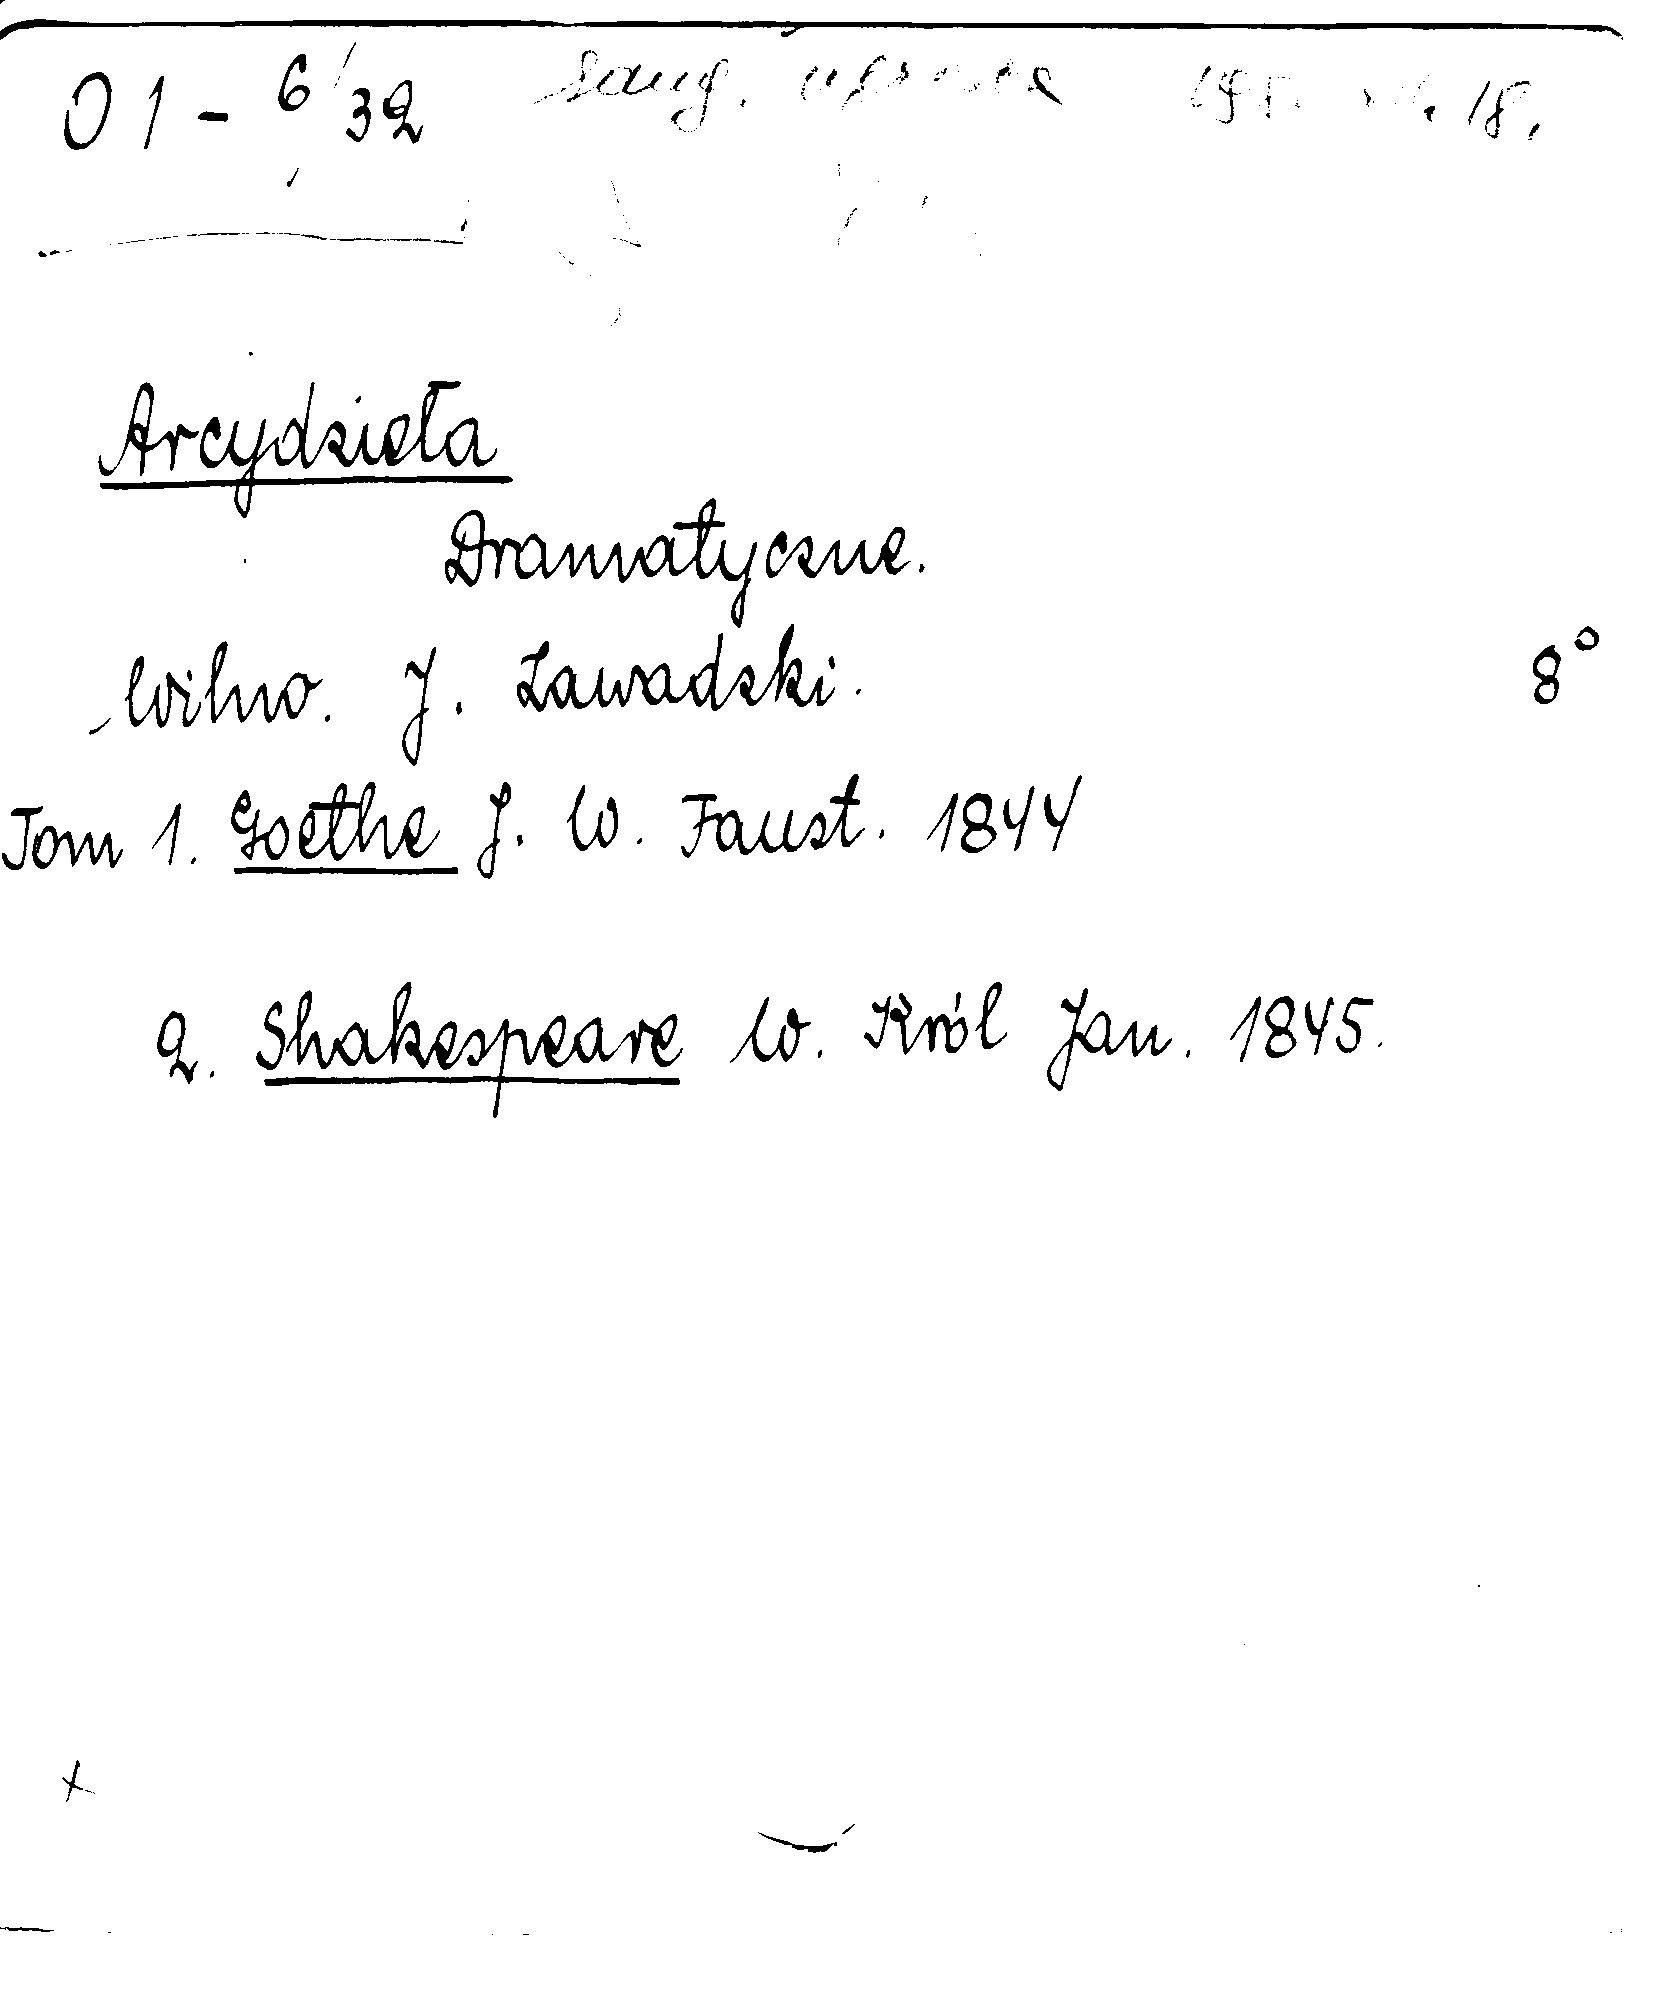 01-6/32 18.
Arcydzieła
Dramatyczne.
Wilno. J. Zawadzki. 8°
Tom 1. Goethe J. W. Faust. 1844
2. Shakespeare W. Król Jan. 1845.